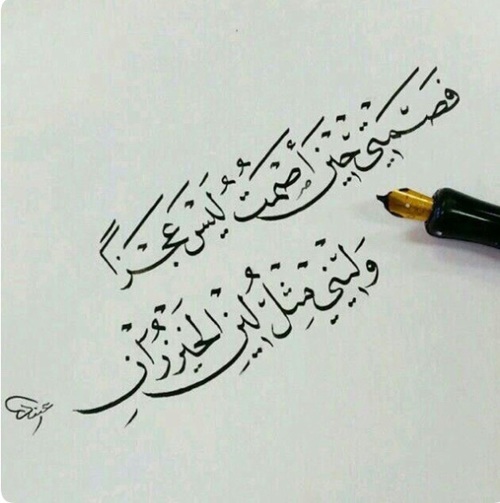 فَصَمْتِي حِيْنَ أَصْمُتُ لَيْسَ عَجْزًا
وَلِيْنِي مِثْلَ لِيْنِ الْخَيْزُرَانِ